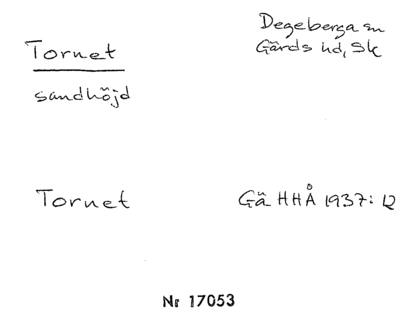 Tornet
sandhöjd
Degeberga sn
Gärds hd, Sk
Tornet
Gä HHÅ 1937: 12
Nr 17053